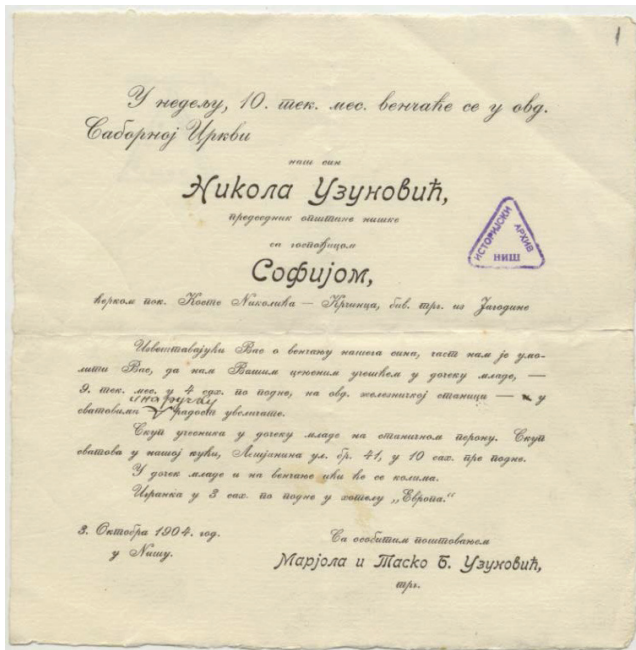 1
У недељу, 10. тек. мес. венчаће се у овд.
Саборној Цркви
наш син
Никола Узуновић,
председник општине нишке
са госпођицом
Софијом,
ћерком пок. Косте Николића — Крчинца, бив. трг. из Јагодине
ИСТОРИЈСКИ АРХИВ
НИШ
Извештавајући Вас о венчању нашега сина, част нам је умо-
лити Вас, да нам Вашим цењеним учешћем у дочеку младе, —
9. тек. мес. у 4 сах. по подне, на овд. железничкој станици — у
и на ручку
сватовима радост увеличате.
Скуп учесника у дочеку младе на станичном перону. Скуп
сватова у нашој кући, Лешјанина ул. бр. 41, у 10 сах. пре подне.
У дочек младе и на венчање ићи ће се колима.
Игранка у 3 сах. по подне у хотелу „Европа.“
3. Октобра 1904. год.
у Нишу.
Са особитим поштовањем
Марјола и Таско Б. Узуновић,
трг.